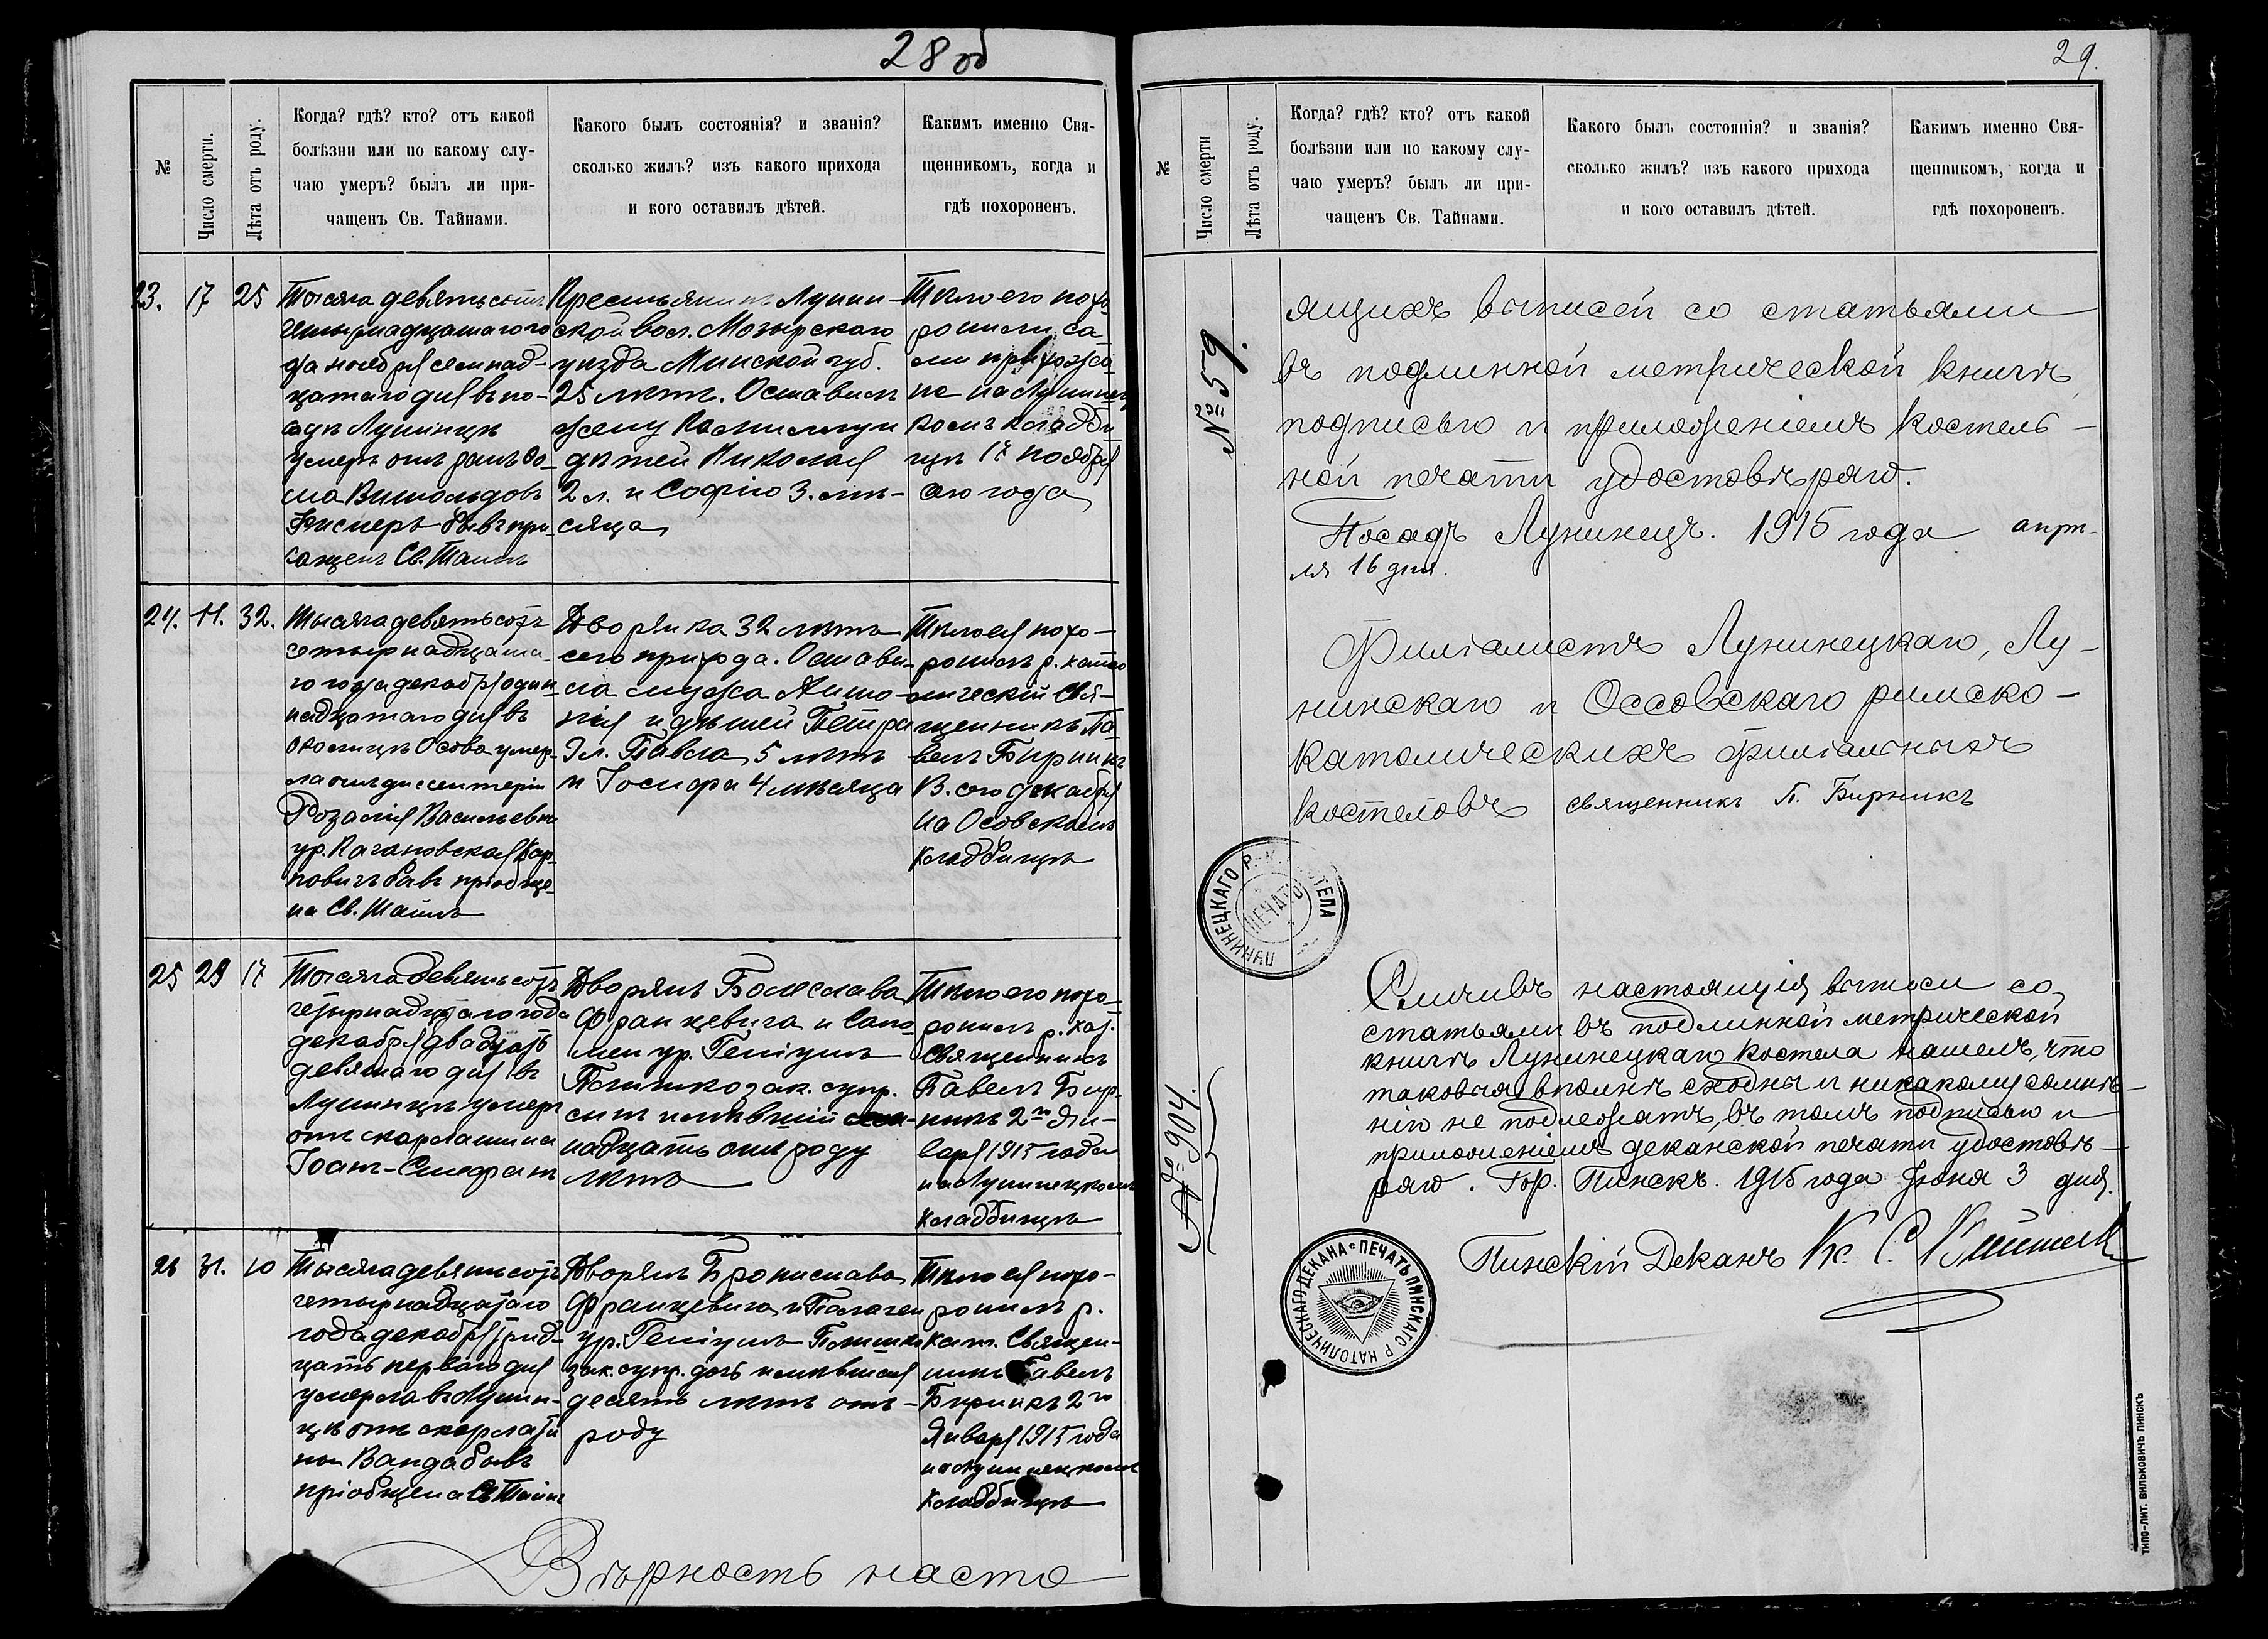 28 об
№
Число смерти.
Лѣта отъ роду.
Когда? гдѣ? кто? отъ какой
болѣзни или по какому слу-
чаю умеръ? былъ ли при-
чащенъ Св. Тайнами.
Какого былъ состоянія? и званія?
сколько жилъ? изъ какого прихода
и кого оставилъ дѣтей.
Какимъ именно Свя-
щенникомъ, когда и
гдѣ похороненъ.
23.
17
25
Тысяча девятьсотъ
четырнадцатаго го
да ноября семнад-
цатаго дня въ по-
садѣ Лунинцѣ
умеръ отъ ранъ
Витольдовъ
бывъ при-
чащенъ Св. Таинъ
Крестьянинъ Лунин-
ской вол. Мозырскаго
уѣзда Минской губ.
25 лѣтъ. Оставилъ
жену Камиллу и
дѣтей Николая
2 л. и Софію 3. мѣ-
сяца
Тѣло его похо
ронили са
ми прихожа
не на Лунинец
комъ кладби
щѣ 17 ноября
сего года
24.
11.
32.
Тысяча девятьсотъ
четырнадцата
го года декабря один
надцатаго дня въ
околицѣ Осова умер-
ла отъ диссентеріи
Розалія Васильевна
ур. Качановская Кар-
повичъ бывъ пріобще-
на Св. Таинъ
Дворянка 32 лѣтъ
сего прихода. Остави-
ла мужа Анто-
нія и дѣтей Петра
9 л. Павла 5 лѣтъ
и Іосифа 4 мѣсяца
Тѣло ея похо-
ронилъ р. като
лическій Свя-
щенникъ Па-
велъ Бирникъ
13. сего декабря
на Осовскомъ
кладбищѣ
25
29
17
Тысяча девятьсотъ
четырнадцатаго года
декабря двадцать
девятаго дня въ
Лунинцѣ умеръ
отъ скарлатина
Іоаннъ-Стефанъ
Дворянъ Болеслава
Францевича и Сало
меи ур. Геніушъ
зак. супр.
сынъ имѣвшій сем-
надцать отъ роду
лѣтъ
Тѣло его похо-
ронилъ р. кат.
Священникъ
Павелъ Бир-
никъ 2го Ян-
варя 1915 года
на Лунинецкомъ
кладбищѣ
26
31.
10
Тысяча девятьсотъ
четырнадцатаго
года декабря трид-
цать перваго дня
умерла въ Лунин-
цѣ отъ скарлати
ны Ванда бывъ
пріобщена Св. Таинъ
Дворянъ Бронислава
Францевича и Пелагеи
ур. Геніушъ
зак. супр. дочь имѣвшая
десять лѣтъ отъ-
роду
Тѣло ея похо-
ронилъ р.
кат. Священ-
никъ Павелъ
Бирникъ 2го
Января 1915 года
на Лунинецкомъ
кладбищѣ
Вѣрность насто
29.
№
Число смерти
Лѣта отъ роду.
Когда? гдѣ? кто? отъ какой
болѣзни или по какому слу-
чаю умеръ? былъ ли при-
чащенъ Св. Тайнами.
Какого былъ состоянія? и званія?
сколько жилъ? изъ какого прихода
и кого оставилъ дѣтей.
Какимъ именно Свя-
щенникомъ, когда и
гдѣ похороненъ.
№ 59.
ящихъ выписей со статьями
въ подлинной метрической книгѣ,
подписью и приложеніемъ костель-
ной печати удостовѣряю.
Посадъ Лунинецъ. 1915 года апрѣ-
ля 16 дня.
Филіалистъ Лунинецкаго, Лу-
нинскаго и Оссовскаго римско-
католическихъ филіальныхъ
костеловъ священникъ П. Бирникъ
ЛУНИНЕЦКАГО Р.-К. КОСТЕЛА
ПЕЧАТЬ
№ 904.
Сличивъ настоящія выписи со
статьями въ подлинной метрической
книгѣ Лунинецкаго костела нашелъ, что
таковыя вполнѣ сходны и никакому сомнѣ-
нію не подлежатъ, въ томъ подписью и
приложеніемъ деканской печати удостовѣ-
ряю. Гор. Пинскъ. 1915 года Іюня 3 дня.
Пинскій Деканъ Кс. С.
ПЕЧАТЬ ПИНСКАГО Р. КАТОЛИЧЕСКАГО ДЕКАНА
ТИПО-ЛИТ. ВИЛЬКОВИЧЪ ПИНСКЪ